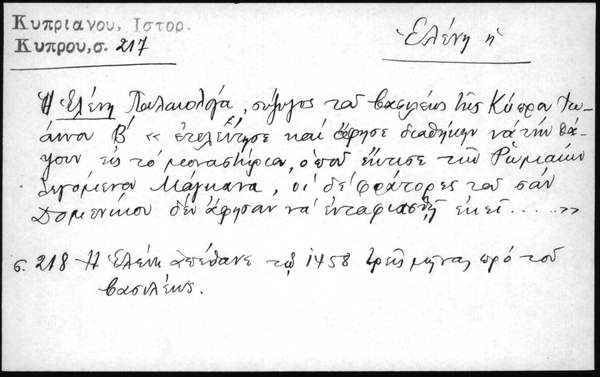 Κυπριανου, Ιστορ.
Κυπρου, σ. 217
Ἑλένη ἡ
Ἡ Ἑλένη Παλαιολόγα, σύζυγος τοῦ βασιλέως τῆς Κύπρου Ἰω-
άννου Β΄ « ἐτελεύτησε καὶ ἄφησε διαθήκην νὰ τὴν θά-
ψουν εἰς τὸ μοναστήριον, ὁποῦ ἔκτισε τῶν Ῥωμαίων
λεγόμενον Μάγκανα, οἱ δὲ φράτορες τοῦ σὰν
Δομενίκου δὲν ἄφησαν νὰ ἐνταφιασθῇ ἐκεῖ ..... »
σ. 218 Ἡ Ἑλένη ἀπέθανε τῷ 1458 τρεῖς μῆνας πρὸ τοῦ
βασιλέως.